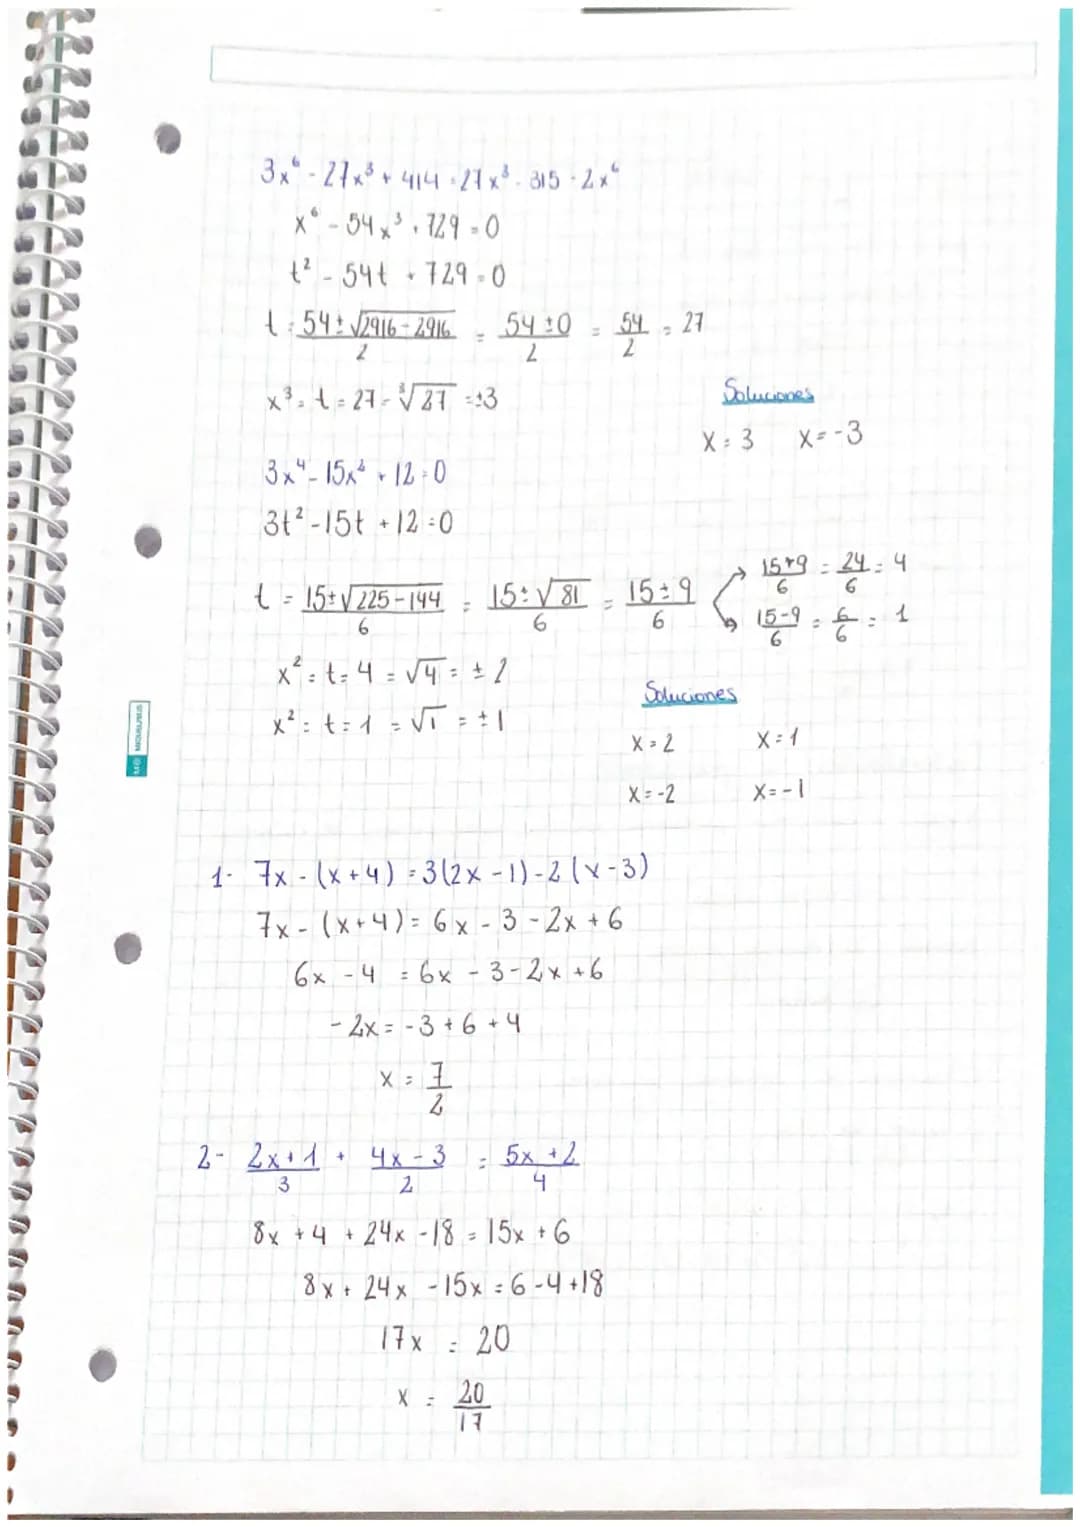 3x⁶ - 27x³ + 414 = 27x³ - 315 + 2x⁶
x⁶ - 54x³ + 729 = 0
t² - 54t + 729 = 0
t = (54 ± √(2916 - 2916))/2 = (54 ± 0)/2 = 54/2 = 27
x³ = t = 27 = ³√27 = ±3
Soluciones
x = 3 x = -3
3x⁴ - 15x² + 12 = 0
3t² - 15t + 12 = 0
t = (15 ± √(225 - 144))/6 = (15 ± √81)/6 = (15 ± 9)/6
(15+9)/6 = 24/6 = 4
(15-9)/6 = 6/6 = 1
x² = t = 4 = √4 = ± 2
x² = t = 1 = √1 = ± 1
Soluciones
x = 2 x = 1
x = -2 x = -1
1- 7x - (x + 4) = 3(2x - 1) - 2(x - 3)
7x - (x + 4) = 6x - 3 - 2x + 6
6x - 4 = 6x - 3 - 2x + 6
- 2x = - 3 + 6 + 4
x = 7/2
2- (2x + 1)/3 + (4x - 3)/2 = (5x + 2)/4
8x + 4 + 24x - 18 = 15x + 6
8x + 24x - 15x = 6 - 4 + 18
17x = 20
x = 20/17